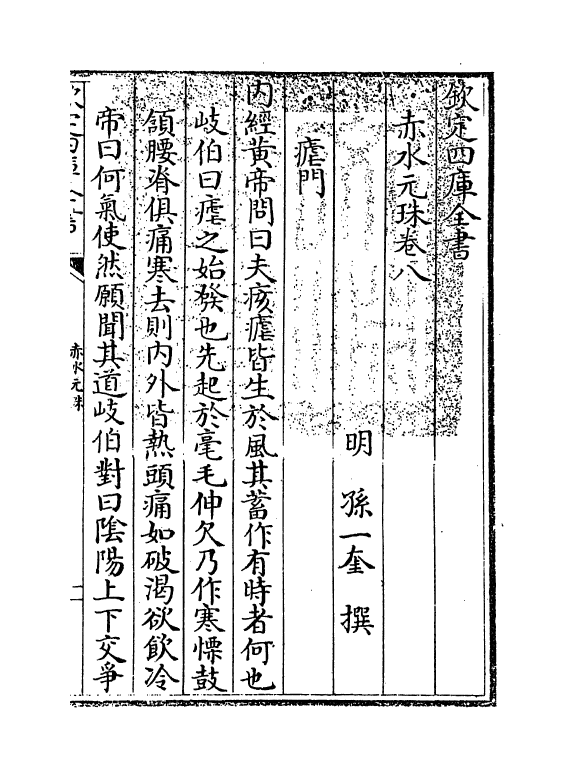 欽定四庫全書
赤水元珠卷八
明　孫一奎　撰
瘧門
內經黃帝問曰夫痎瘧皆生於風其蓄作有時者何也
岐伯曰瘧之始發也先起於毫毛伸欠乃作寒慄鼓
頷腰脊俱痛寒去則內外皆熱頭痛如破渴欲飲冷
帝曰何氣使然願聞其道岐伯對曰陰陽上下交爭
欽定四庫全書
赤水元珠